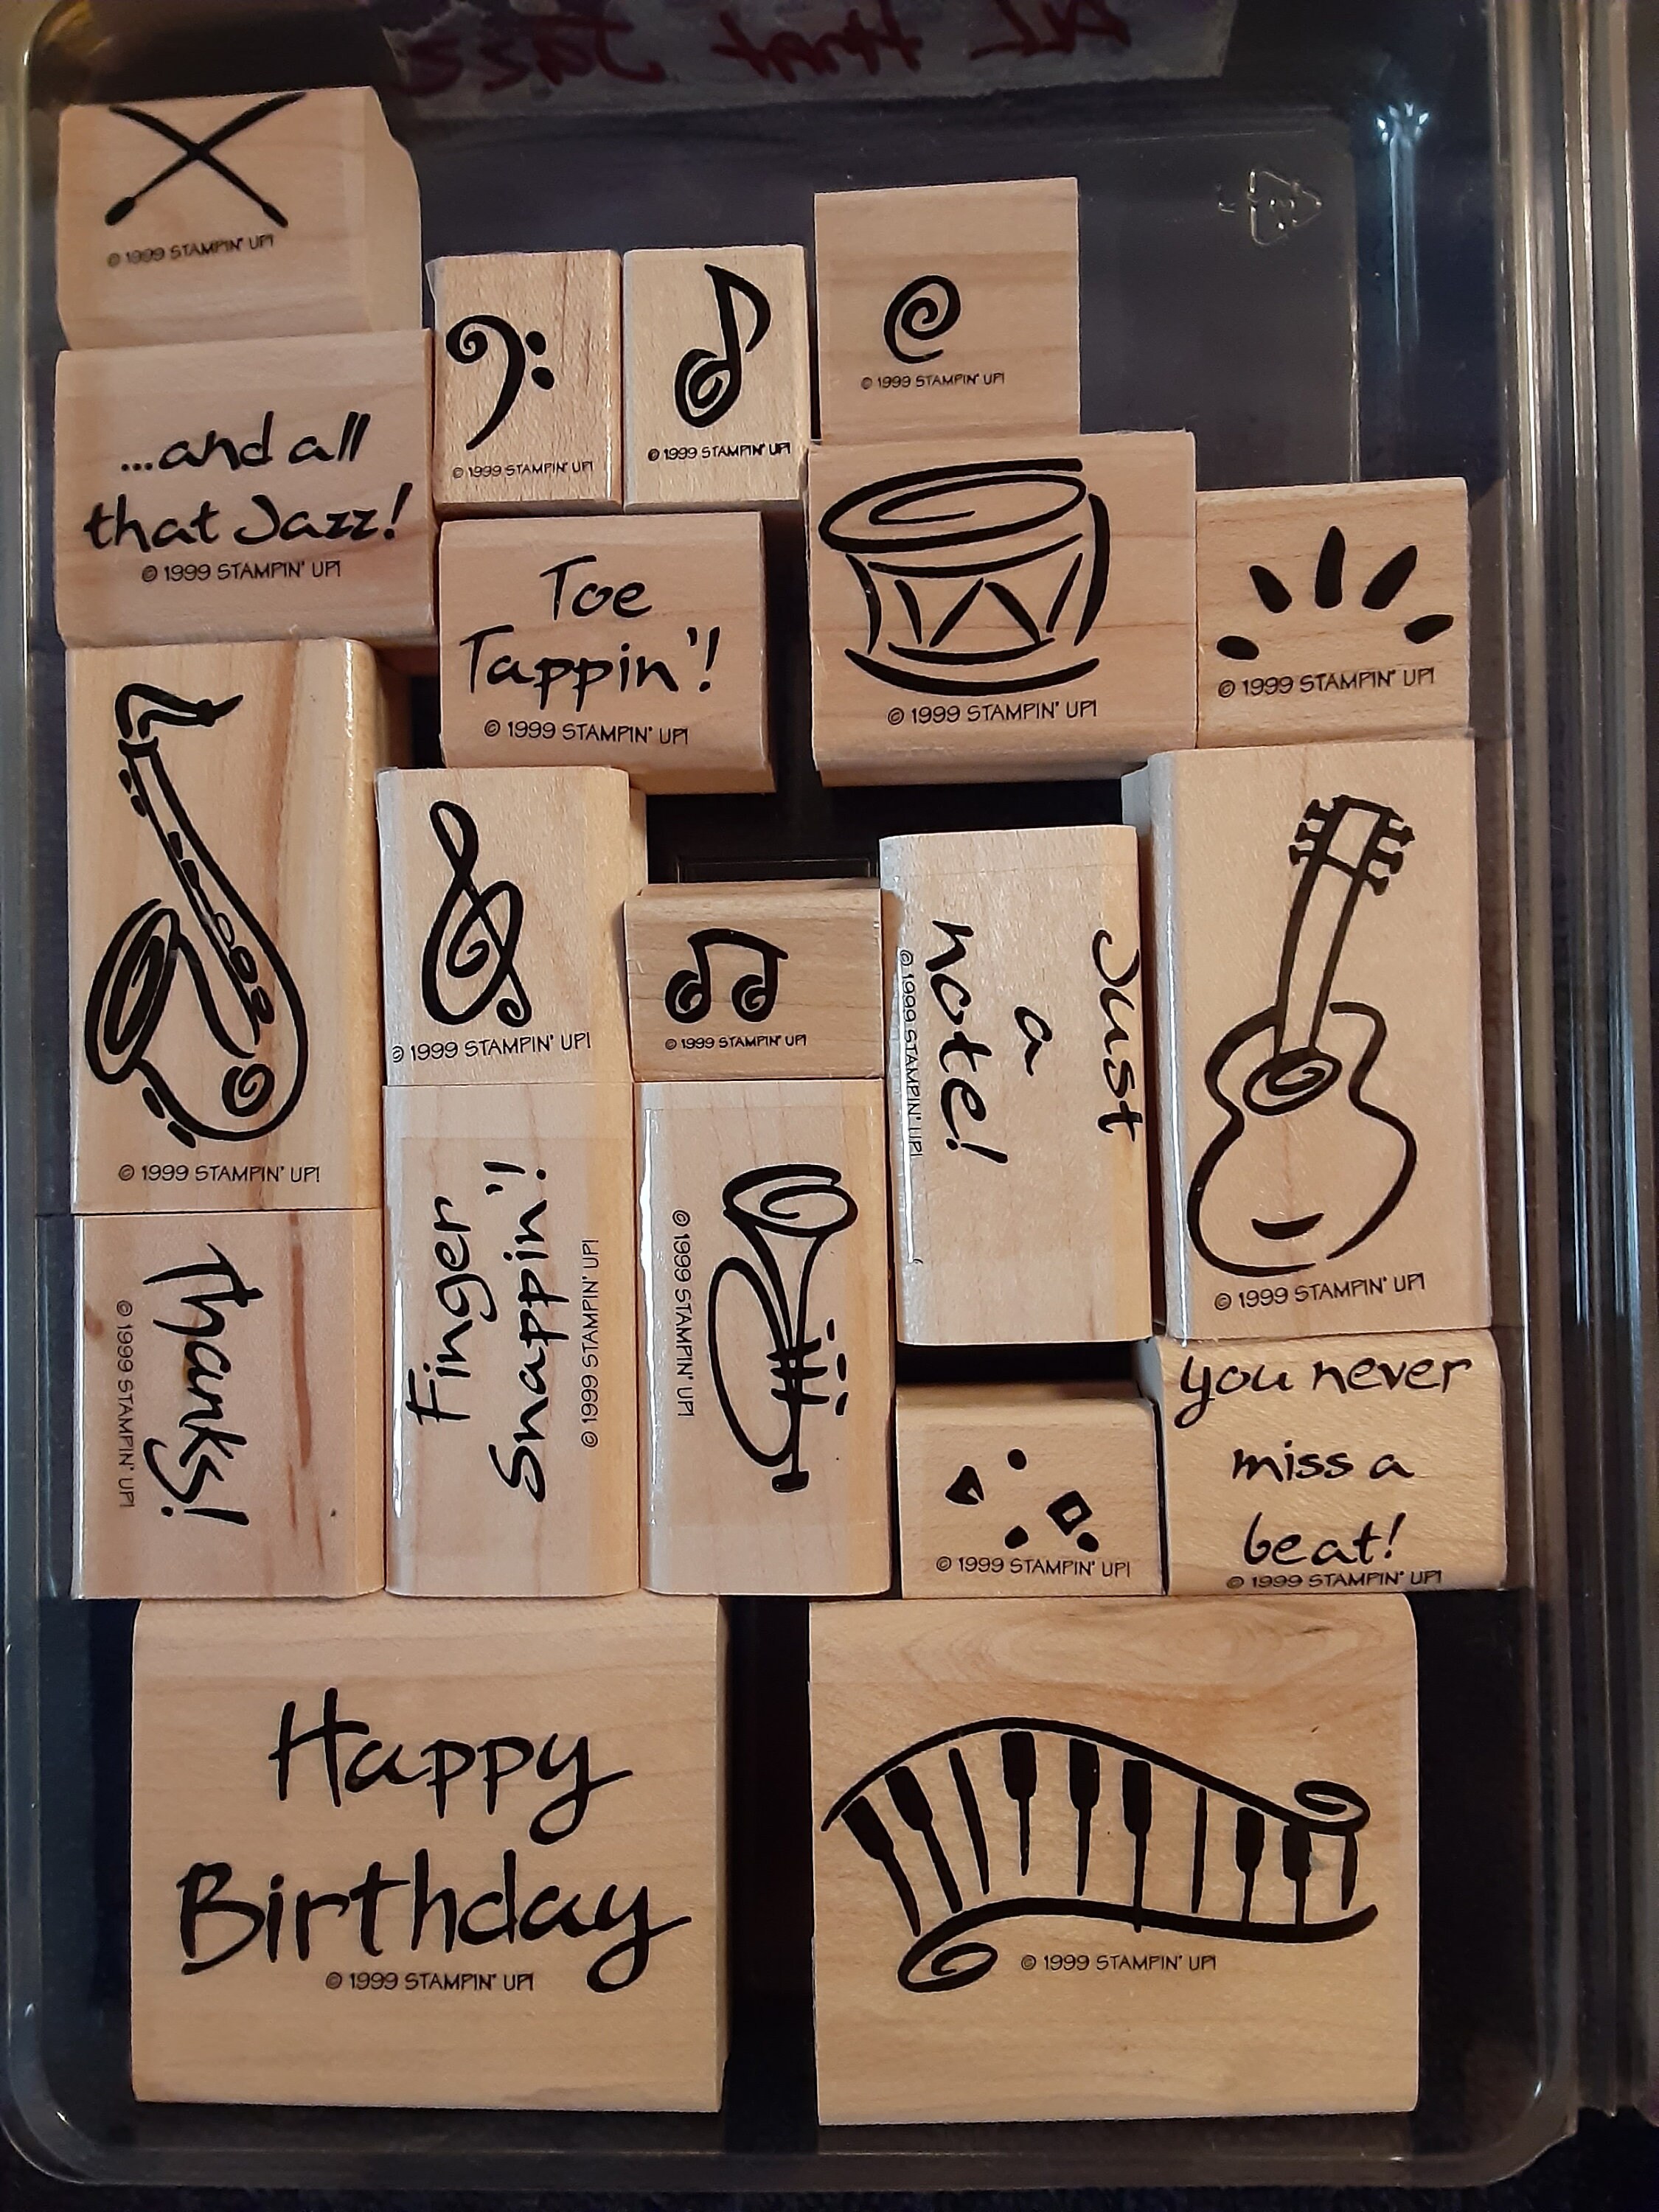 ALL that Jazz
© 1999 STAMPIN' UP!
© 1999 STAMPIN' UP!
© 1999 STAMPIN' UP!
© 1999 STAMPIN' UP!
...and all
that Jazz!
© 1999 STAMPIN' UP!
Toe
Tappin'!
© 1999 STAMPIN' UP!
© 1999 STAMPIN' UP!
© 1999 STAMPIN' UP!
© 1999 STAMPIN' UP!
© 1999 STAMPIN' UP!
© 1999 STAMPIN' UP!
Just
a
note!
© 1999 STAMPIN' UP!
© 1999 STAMPIN' UP!
Thanks!
© 1999 STAMPIN' UP!
Finger
Snappin'!
© 1999 STAMPIN' UP!
© 1999 STAMPIN' UP!
© 1999 STAMPIN' UP!
you never
miss a
beat!
© 1999 STAMPIN' UP!
Happy
Birthday
© 1999 STAMPIN' UP!
© 1999 STAMPIN' UP!